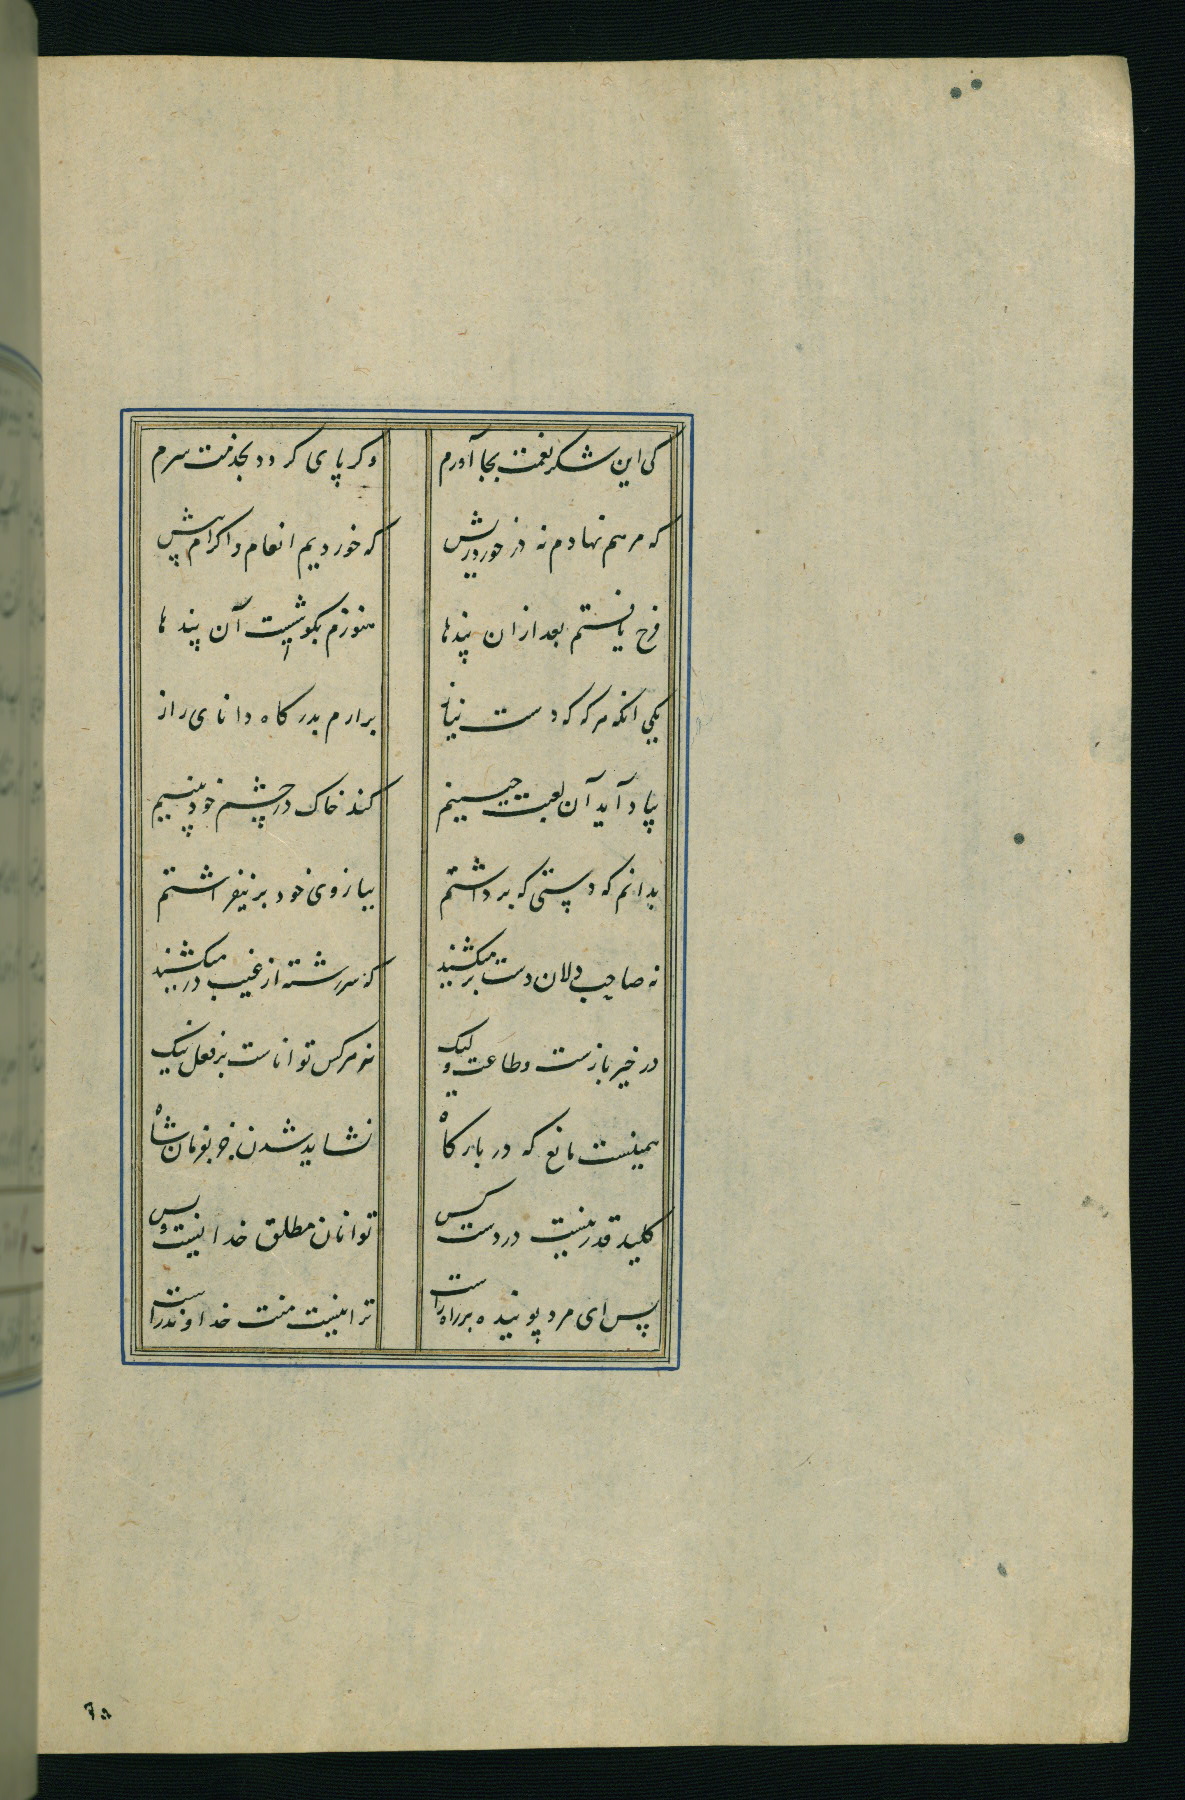 کی این شکر نعمت بجا آورم وکر پای کردد بخدمت سرم
که مرهم نهادم نه در خورد ریش که خوردیم انعام و اکرام پیش
فرج یافتم بعد ازان پندها هنوزم بکوشست آن پندها
یکی انکه هرکه که دست نیاز برارم بدرکاه دانای راز
بیاد آید آن لعبت چینیم کند خاک در چشم خود بینیم
بدانم که دستی که برداشتم ببازوی خود بر نیفراشتم
نه صاحب دلان دست بر میکشند که سررشته از غیب در میکشند
در خیر بازست وطاعت ولیک نه هرکس تواناست بر فعل نیک
همینست مانع که در بارکاه نشاید شدن جز بفرمان شاه
کلید قدر نیست در دست کس توانان مطلق خدایست وبس
پس ای مرد پوینده بر راه راست ترا نیست منت خداوند راست